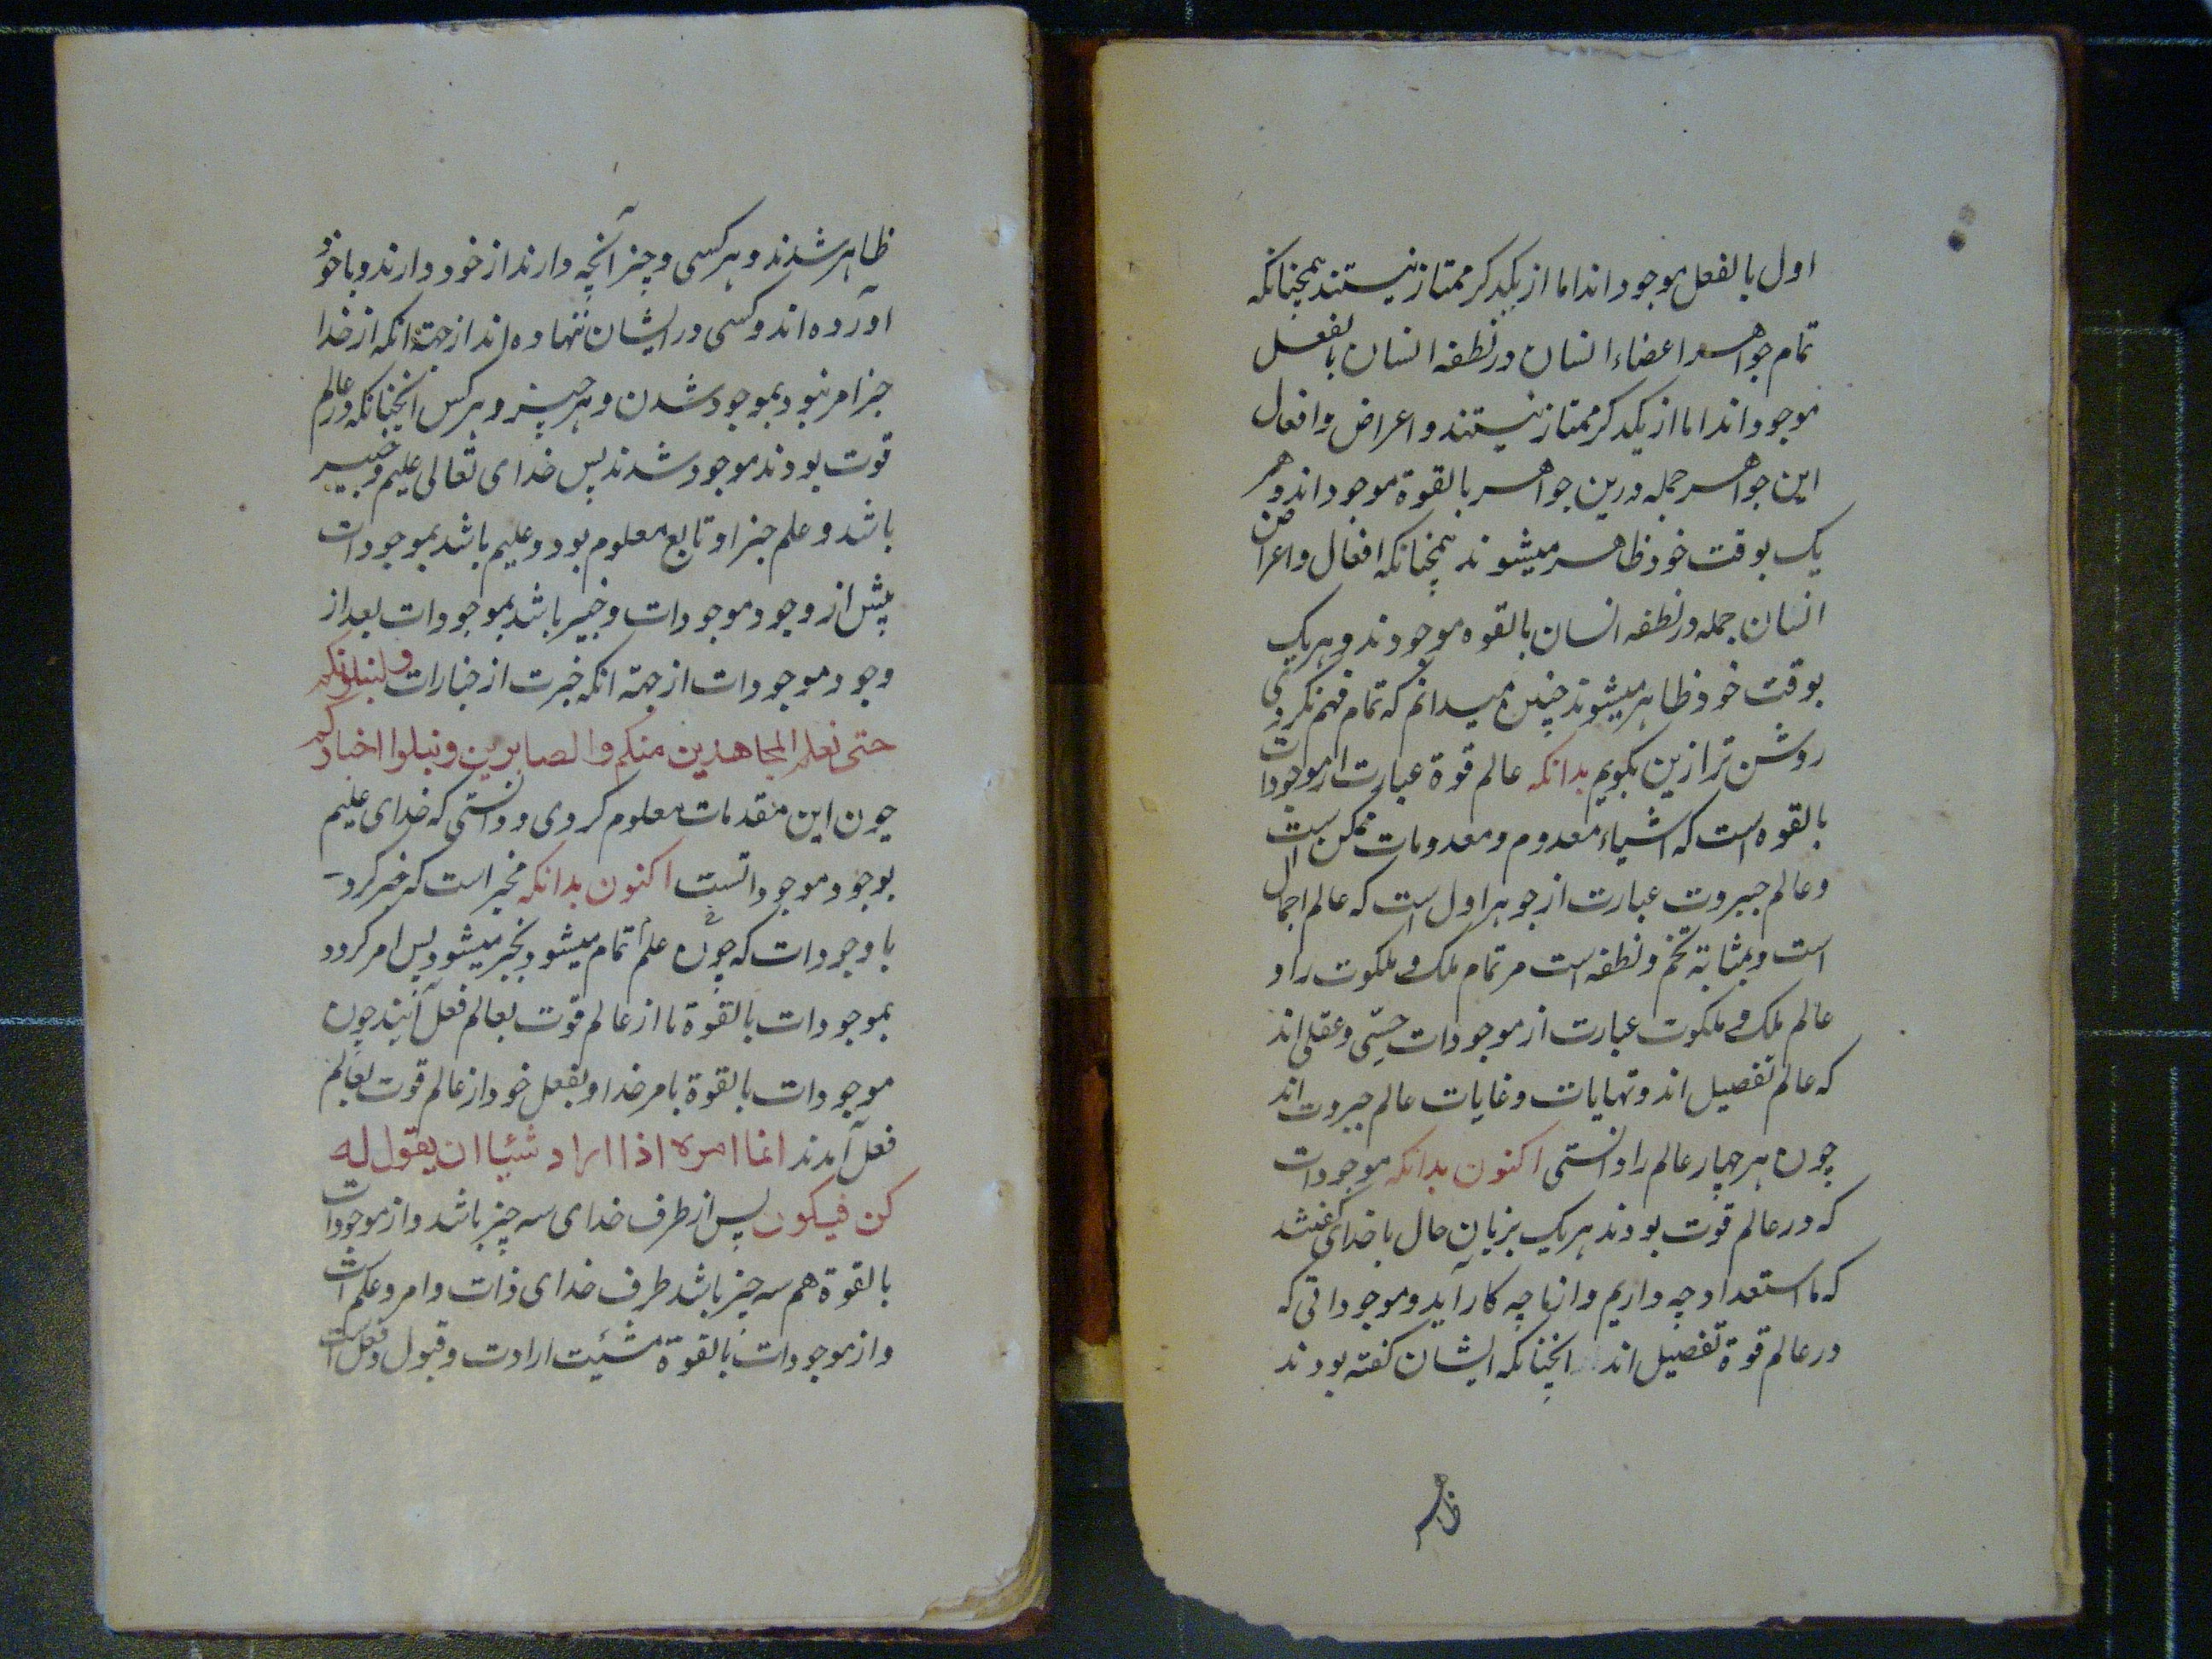 اول بالفعل موجود اند اما از یکدکر ممتاز نیستند همچنانکه
تمام جواهر اعضاء انسان در نطفه انسان بالفعل
موجود اند اما از یکدکر ممتاز نیستند و اعراض و افعال
این جواهر جمله درین جواهر بالقوة موجود اند و هر
یک بوقت خود ظاهر میشوند همچنانکه افعال و اعراض
انسان جمله در نطفه انسان بالقوه موجودند و هر یک
بوقت خود ظاهر میشوند چنین میدانم که تمام فهم نکردی
روشن تر ازین بکویم بدانکه عالم قوة عبارت از موجودات
بالقوه است که اشیاء معدوم و معدومات ممکن است
و عالم جبروت عبارت از جوهر اول است که عالم اجمال
است و بمثابه تخم و نطفه است مر تمام ملک و ملکوت را و
عالم ملک و ملکوت عبارت از موجودات حسّی و عقلی اند
که عالم تفصیل اند و نهایات و غایات عالم جبروت اند
چون هر چهار عالم را دانستی اکنون بدانکه موجودات
که در عالم قوت بودند هر یک بزبان حال با خدای
که ما استعداد چه داریم و از ما چه کار آید و موجوداتی که
در عالم قوة تفصیل اند انچنانکه ایشان کفته بودند
ظاهر
ظاهر شدند و هر کسی و چیز آنچه دارند از خود دارند و با خود
آورده اند و کسی در ایشان ننهاده اند از جهة انکه از خدا
جز امر نبود بموجود شدن و هر چیز و هر کس انچنانکه در عالم
قوت بودند موجود شدند پس خدای تعالی علیم و خبیر
باشد و علم جز او تابع معلوم بود و علیم باشد بموجودات
پیش از وجود موجودات و خبیر باشد بموجودات بعد از
وجود موجودات از جهة انکه خبرت از خبارات ولنبلونکم
حتی نعلم المجاهدین منکم والصابرین ونبلوا اخبارکم
چون این مقدمات معلوم کردی و دانستی که خدای علیم
بوجود موجوداتست اکنون بدانکه مخبر است که خبر کرد
با وجودات که چون علم تمام میشود بخبر میشود پس امر کردد
بموجودات بالقوة تا از عالم قوت بعالم فعل آیند چون
موجودات بالقوة بامر خدا و بفعل خود از عالم قوت بعالم
فعل آمدند انما امره اذا اراد شیئا ان یقول له
کن فیکون پس از طرف خدای سه چیز باشد و از موجودات
بالقوة هم سه چیز باشد طرف خدای ذات و امر و علم است
و از موجودات بالقوة مشئیت ارادت و قبول و فعل است